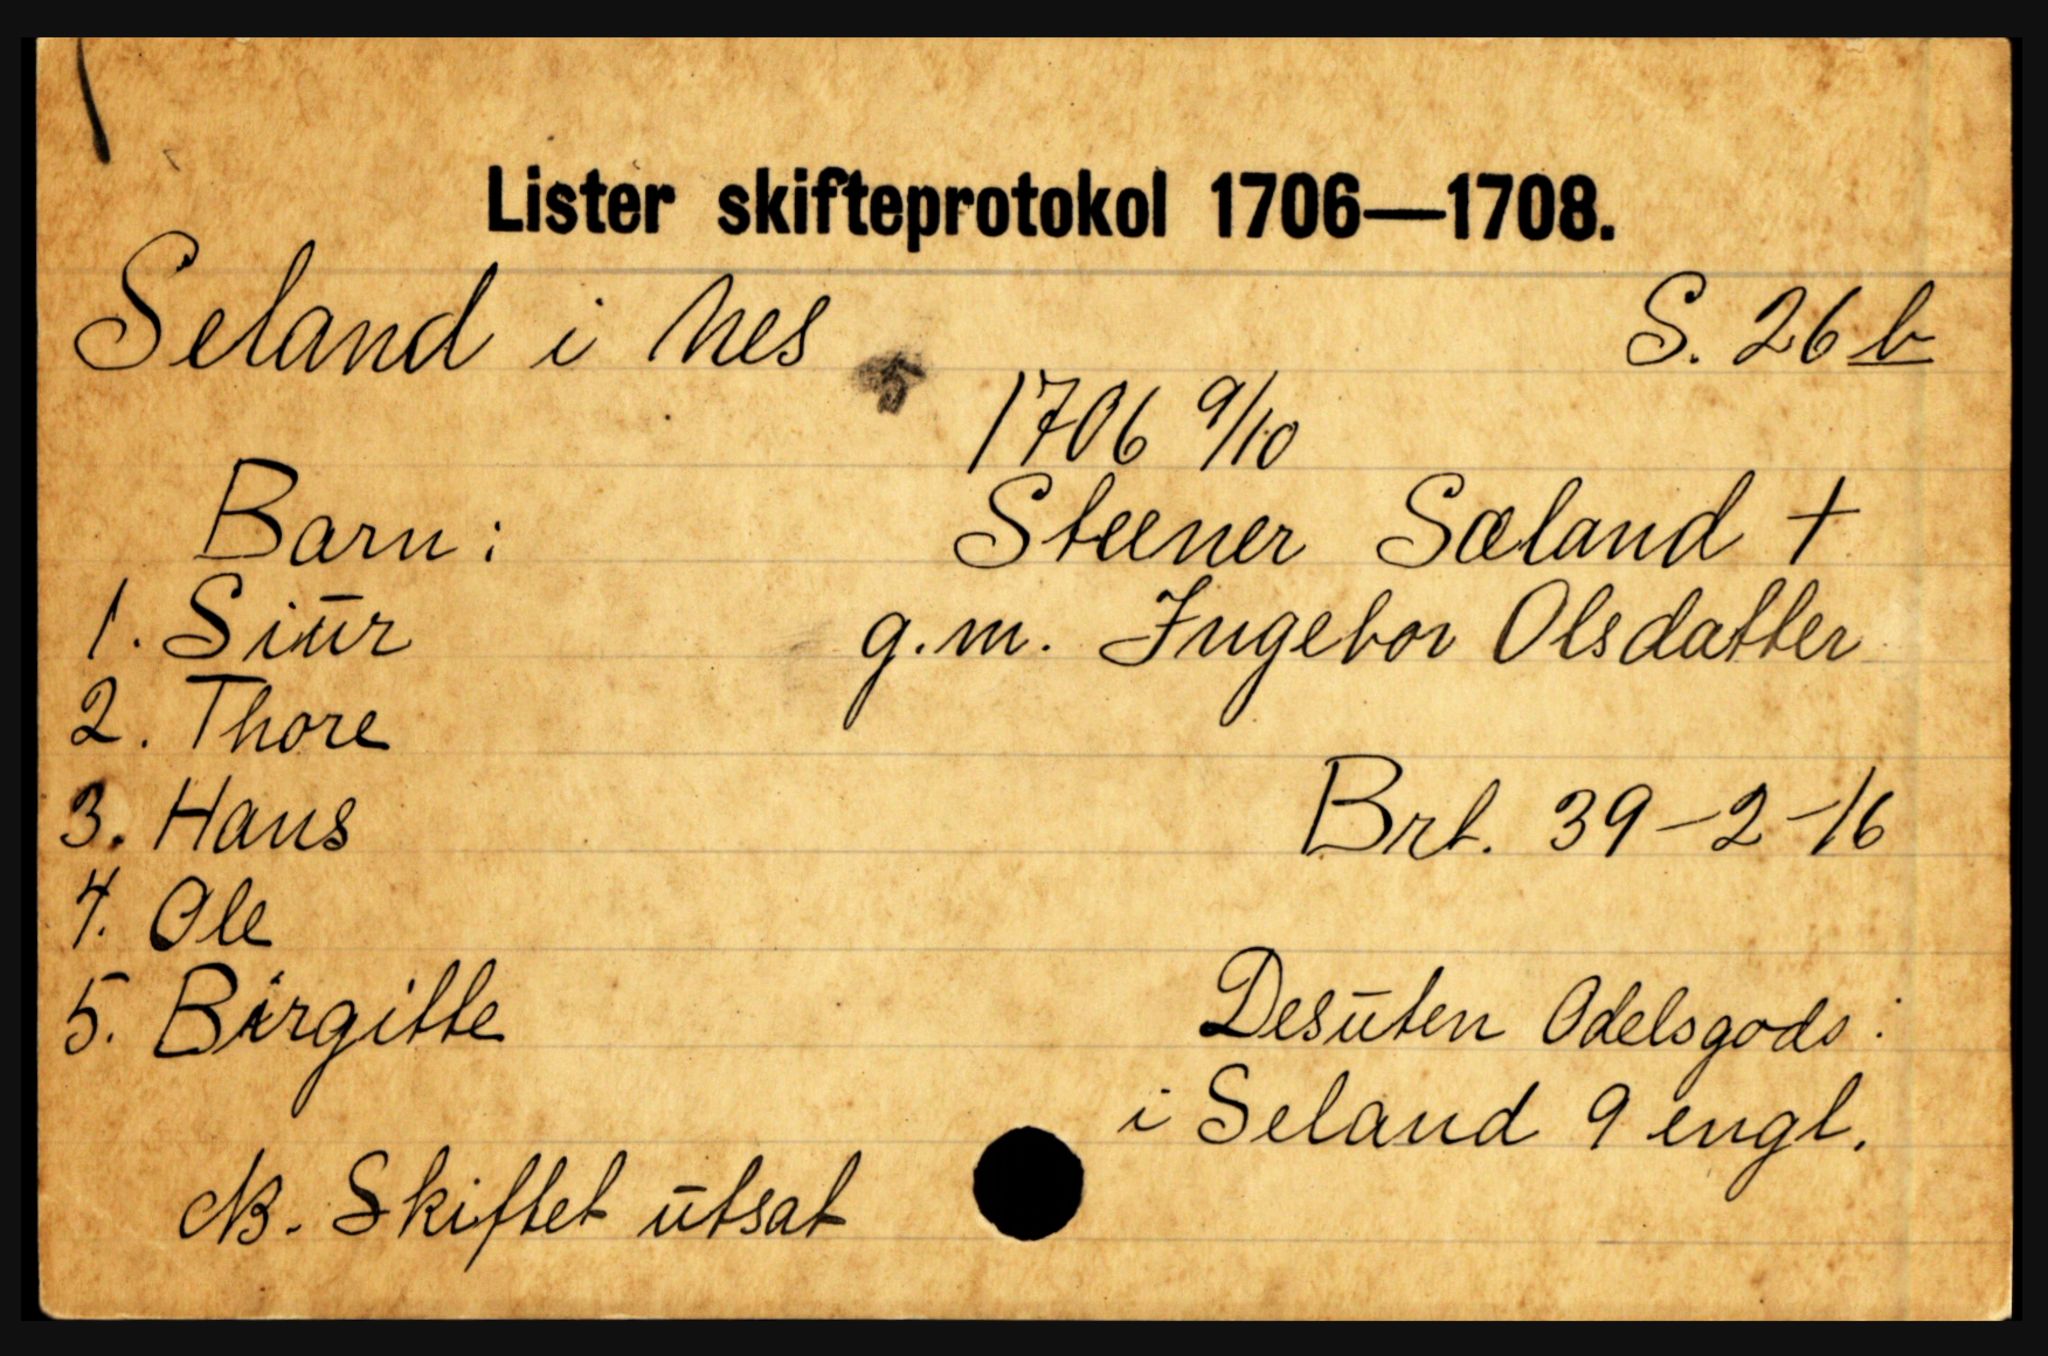 Lister skifteprotokol 1706—1708.
Seland i Nes S. 26 b
1706 9/10
Barn: Steener Sæland +
1. Siūr g.m. Ingebor Olsdatter
2. Thore
3. Hans Brt. 39-2-16
4. Ole
5. Birgitte Desūten Odelsgods:
i Seland 9 engl.
NB. Skiftet ūtsat